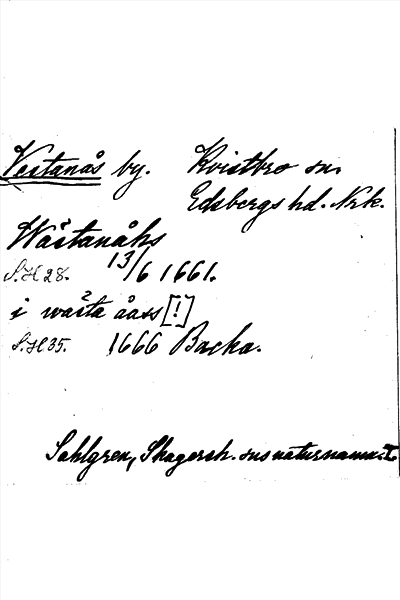 Vestanås by. Kvistbro sn.
Edsbergs hd. Nrk.
Wästanåhs
S.H 28. 13/6 1661.
i wästa åass [!]
S.H 35. 1666 Backa.
Sahlgren, Skagersh. sns naturnamn. I